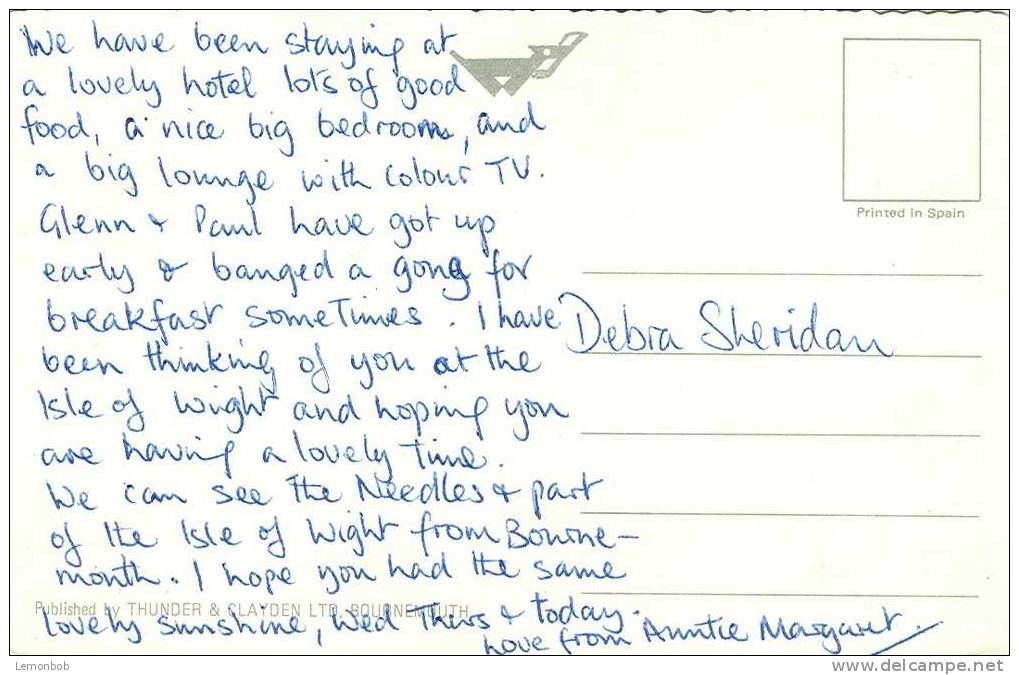 We have been staying at
a lovely hotel lots of good
food, a nice big bedroom, and
a big lounge with colour TV.
Glenn & Paul have got up
early & banged a gong for
breakfast sometimes. I have
been thinking of you at the
Isle of Wight and hoping you
are having a lovely time.
We can see the Needles & part
of the Isle of Wight from Bourne-
mouth. I hope you had the same
lovely sunshine, Wed Thurs & today.
Love from Auntie Margaret.
Published by THUNDER & CLAYDEN LTD. BOURNEMOUTH
Printed in Spain
Debra Sheridan
Lemonbob
www.delcampe.net